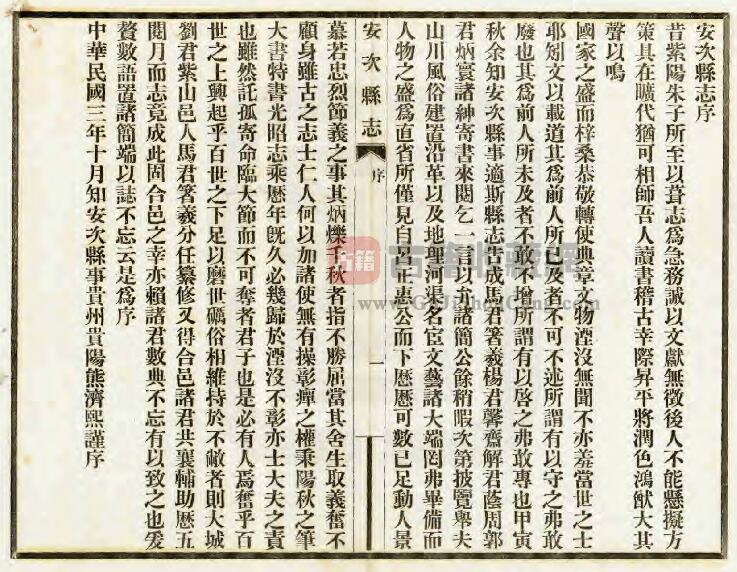 安次縣志序
昔紫陽朱子所至以葺志爲急務誠以文獻無徵後人不能懸擬方
策具在曠代猶可相師吾人讀書稽古幸際昇平將潤色鴻猷大其
聲以鳴
國家之盛而梓桑恭敬轉使典章文物湮沒無聞不亦羞當世之士
耶矧文以載道其爲前人所已及者不可不述所謂有以守之弗敢
廢也其爲前人所未及者不敢不增所謂有以啓之弗敢專也甲寅
秋余知安次縣事適斯縣志告成馬君箸羲楊君馨齋解君蔭周郭
君炳寰諸紳寄書來閱乞一言以弁諸簡公餘稍暇次第披覽舉夫
山川風俗建置沿革以及地理河渠名宦文藝諸大端罔弗畢備而
人物之盛爲直省所僅見自呂正惠公而下歷歷可數已足動人景
安次縣志
序
一
慕若忠烈節義之事其炳爍千秋者指不勝屈當其舍生取義奮不
顧身雖古之志士仁人何以加諸使無有操彰癉之權秉陽秋之筆
大書特書光照志乘歷年旣久必幾歸於湮沒不彰亦士大夫之責
也雖然託孤寄命臨大節而不可奪者君子也是必有人焉奮乎百
世之上興起乎百世之下足以磨世礪俗相維持於不敝者則大城
劉君紫山邑人馬君箸羲分任纂修又得合邑諸君共襄輔助歷五
閱月而志竟成此固合邑之幸亦賴諸君數典不忘有以致之也爰
贅數語置諸簡端以誌不忘云是爲序
中華民國三年十月知安次縣事貴州貴陽熊濟熙謹序
古籍